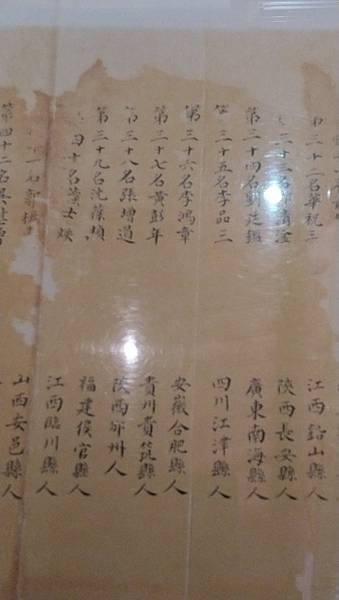 三十二名華祝三 江西鉛山縣人
三十三名 陝西長安縣人
第三十四名 廣東南海縣人
三十五名李品三 四川江津縣人
第三十六名李鴻章 安徽合肥縣人
第三十七名黃彭年 貴州貴筑縣人
第三十八名張增道 陝西邠州人
第三十九名沈葆楨 福建侯官縣人
四十名黃士 江西臨川縣人
一名郭 山西安邑縣人
第四十二名吳